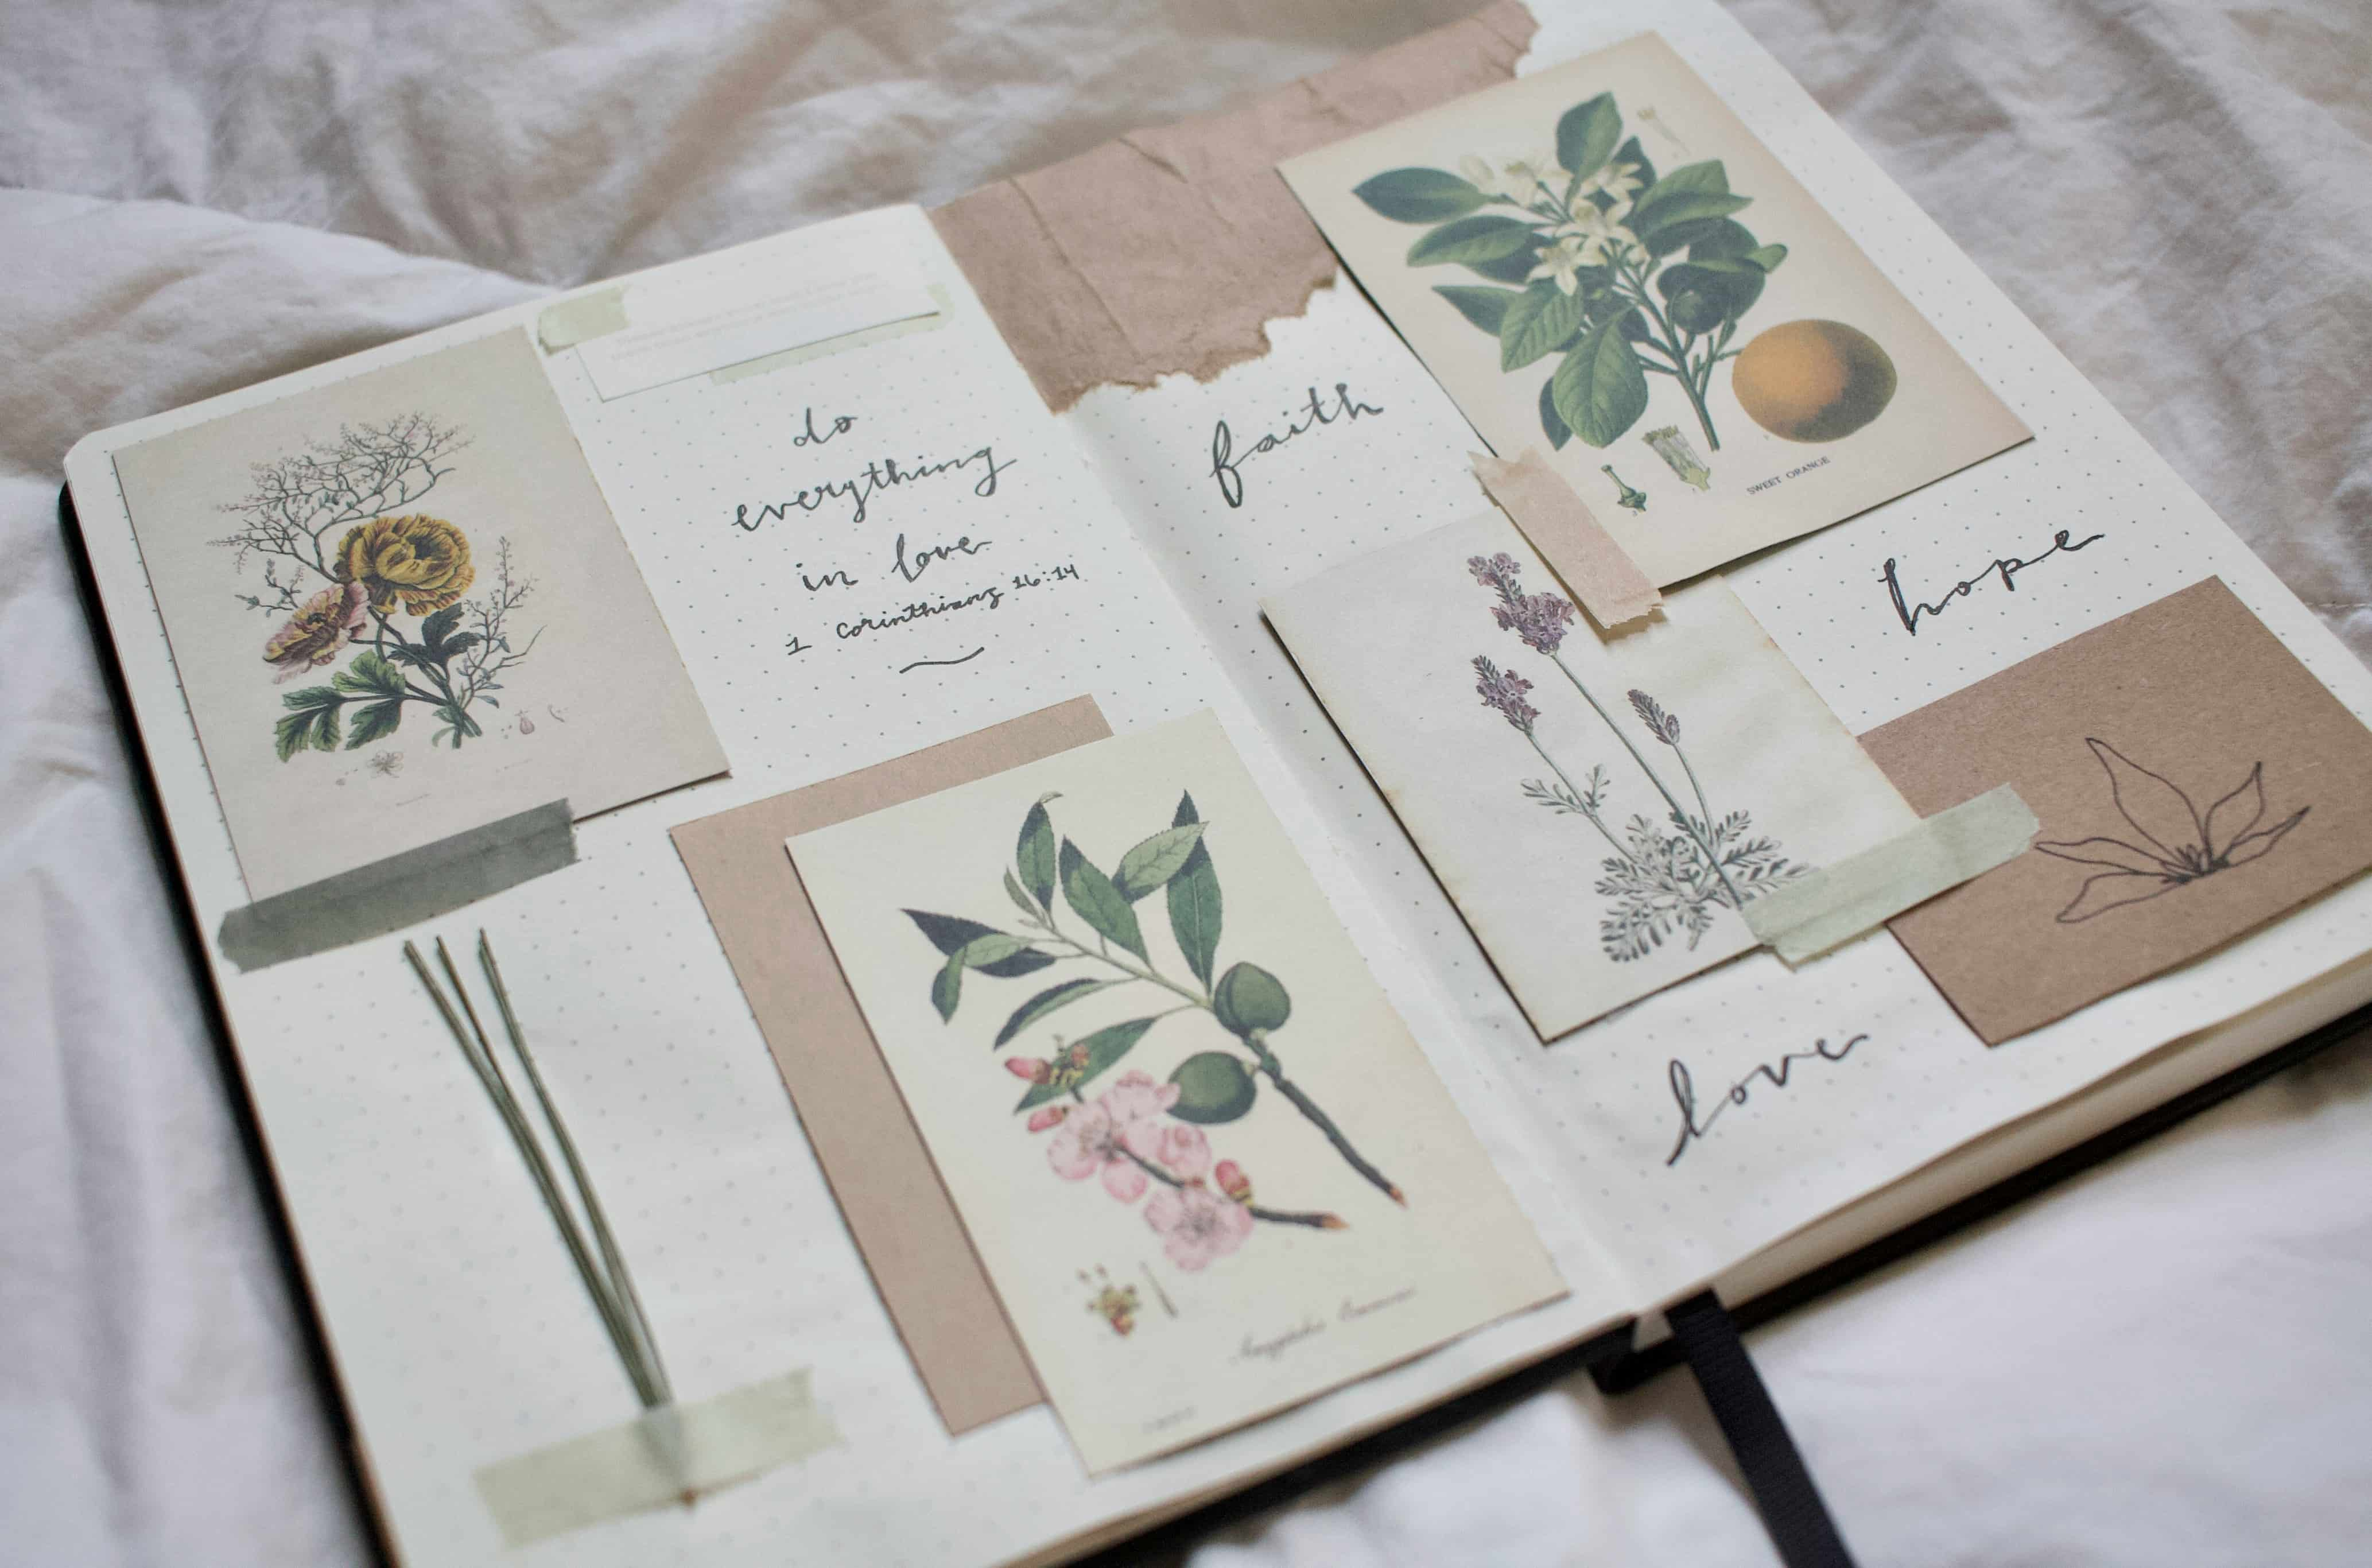 do
everything
in love
1 Corinthians 16:14
faith
SWEET ORANGE
hope
love